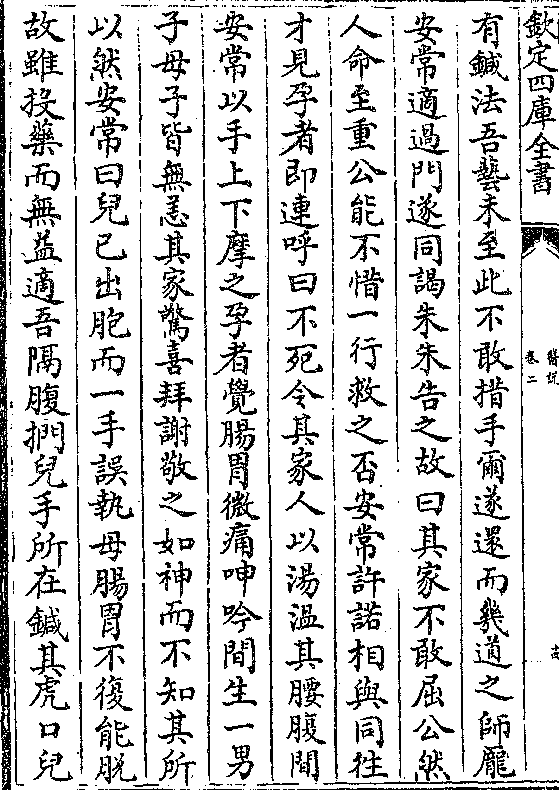 欽定四庫全書
醫説
卷二
有鍼法吾藝未至此不敢措手爾遂還而幾道之師龎
安常適過門遂同謁朱朱告之故曰其家不敢屈公然
人命至重公能不惜一行救之否安常許諾相與同往
才見孕者即連呼曰不死令其家人以湯溫其腰腹間
安常以手上下摩之孕者覺腸胃微痛呻吟間生一男
子母子皆無恙其家驚喜拜謝敬之如神而不知其所
以然安常曰兒已出胞而一手誤執母腸胃不復能脱
故雖投藥而無益適吾隔腹捫兒手所在鍼其虎口兒